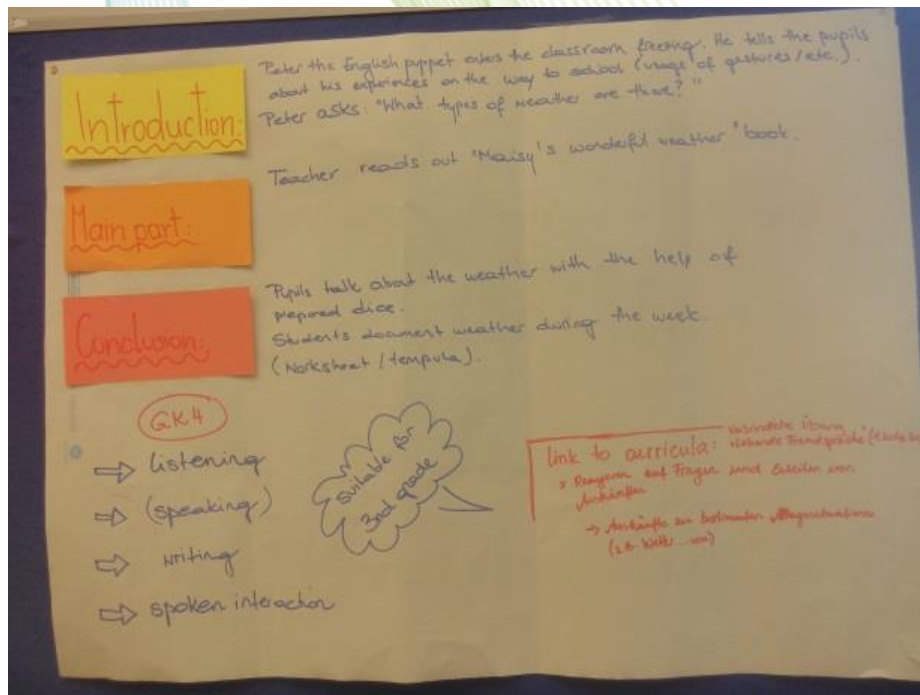 Introduction:
Peter the English puppet enters the classroom freezing. He tells the pupils
about his experiences on the way to school (usage of gestures/etc.).
Peter asks: "What types of weather are there?"
Teacher reads out "Maisy's wonderful weather" book.
Main part:
Pupils talk about the weather with the help of
prepared dice.
Conclusion:
Students document weather during the week.
(Worksheet / tempula).
GK4
⇨ listening
⇨ (speaking)
⇨ writing
⇨ spoken interaction
Suitable for
3rd grade
link to curricula:
verbindliche Übung
"lebende Fremdsprache"
Reagieren auf Fragen und Erteilen von
Auskünften
→ Auskünfte zu bestimmten
(z.B. Wetter